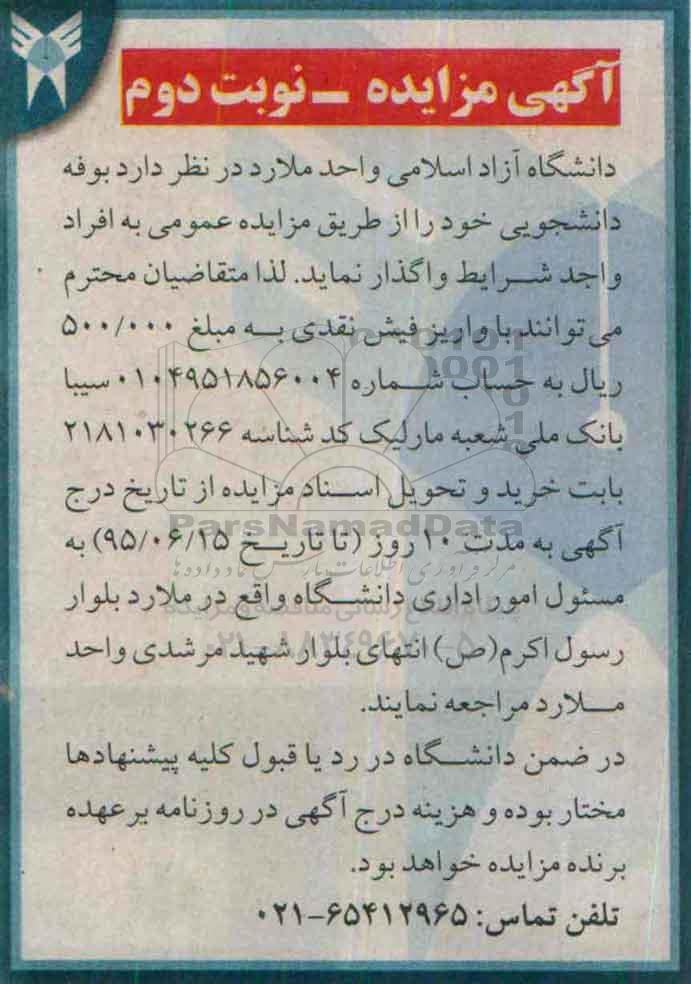 آگهی مزایده – نوبت دوم
دانشگاه آزاد اسلامی واحد ملارد در نظر دارد بوفه
دانشجویی خود را از طریق مزایده عمومی به افراد
واجد شرایط واگذار نماید. لذا متقاضیان محترم
می‌توانند با واریز فیش نقدی به مبلغ ۵۰۰/۰۰۰
ریال به حساب شماره ۰۱۰۴۹۵۱۸۵۶۰۰۴ سیبا
بانک ملی شعبه مارلیک کد شناسه ۲۱۸۱۰۳۰۲۶۶
بابت خرید و تحویل اسناد مزایده از تاریخ درج
آگهی به مدت ۱۰ روز (تا تاریخ ۹۵/۰۶/۱۵) به
مسئول امور اداری دانشگاه واقع در ملارد بلوار
رسول اکرم(ص) انتهای بلوار شهید مرشدی واحد
ملارد مراجعه نمایند.
در ضمن دانشگاه در رد یا قبول کلیه پیشنهادها
مختار بوده و هزینه درج آگهی در روزنامه بر عهده
برنده مزایده خواهد بود.
تلفن تماس: ۶۵۴۱۲۹۶۵-۰۲۱
ParsNamadData
مرکز فرآوری اطلاعات پارس نماد داده ها